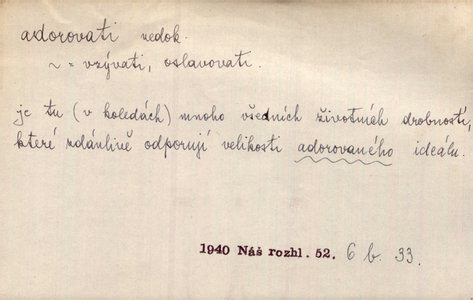 adorovati nedok.
~ = vzývati, oslavovati.
je tu (v koledách) mnoho všedních životních drobností,
které zdánlivě odporují velikosti adorovaného ideálu.
1940 Náš rozhl. 52. 6 b. 33.